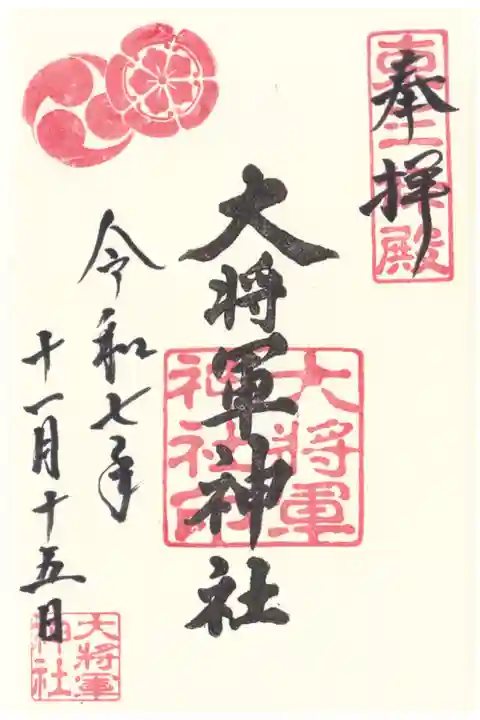 奉拝
東三条殿
大将軍神社
大将軍
神社印
令和七年
十一月十五日
大将軍
神社